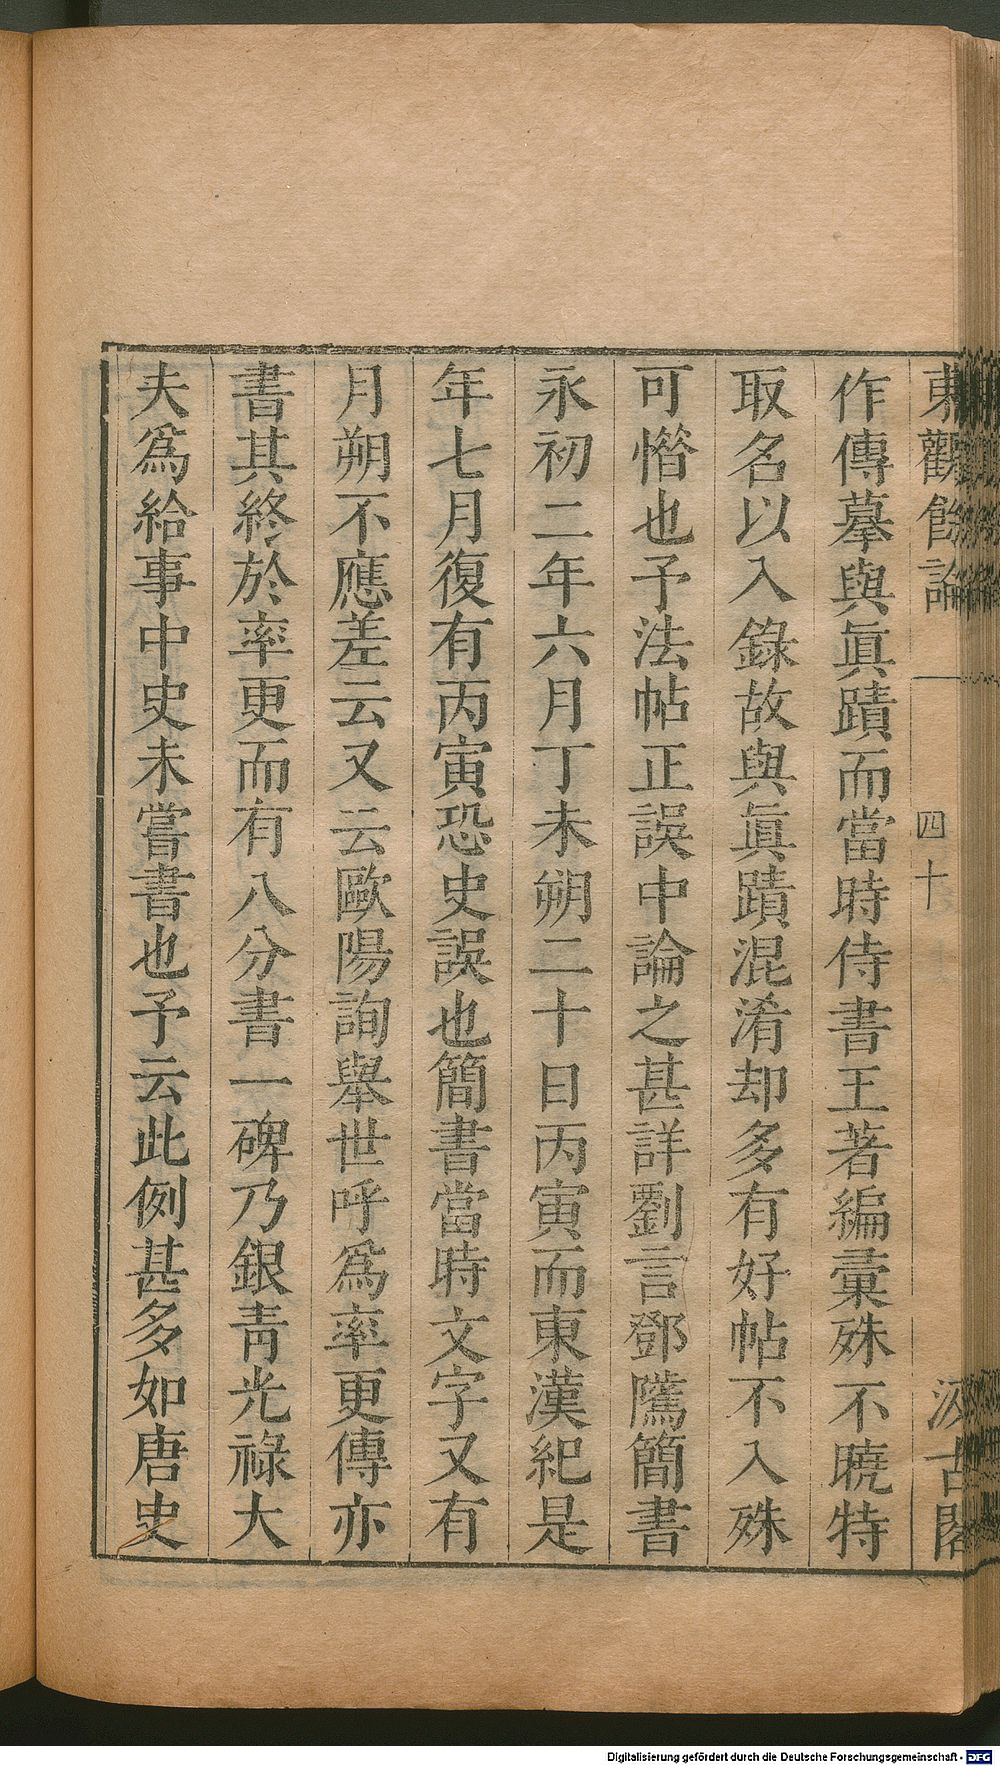 東觀餘論
四十
汲古閣
作傳摹與眞蹟而當時侍書王著編彙殊不曉特
取名以入錄故與眞蹟混淆却多有好帖不入殊
可惜也予法帖正誤中論之甚詳劉言鄧隲簡書
永初二年六月丁未朔二十日丙寅而東漢紀是
年七月復有丙寅恐史誤也簡書當時文字又有
月朔不應差云又云歐陽詢舉世呼爲率更傳亦
書其終於率更而有八分書一碑乃銀靑光祿大
夫爲給事中史未嘗書也予云此例甚多如唐史
Digitalisierung gefördert durch die Deutsche Forschungsgemeinschaft - DFG